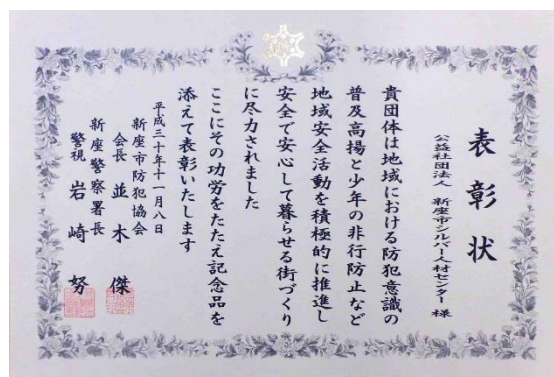 表彰状
公益社団法人 新座市シルバー人材センター 様
貴団体は地域における防犯意識の
普及高揚と少年の非行防止など
地域安全活動を積極的に推進し
安全で安心して暮らせる街づくり
に尽力されました
ここにその功労をたたえ記念品を
添えて表彰いたします
平成三十年十一月八日
新座市防犯協会
会長 並木 傑
新座警察署長
警視 岩崎 努